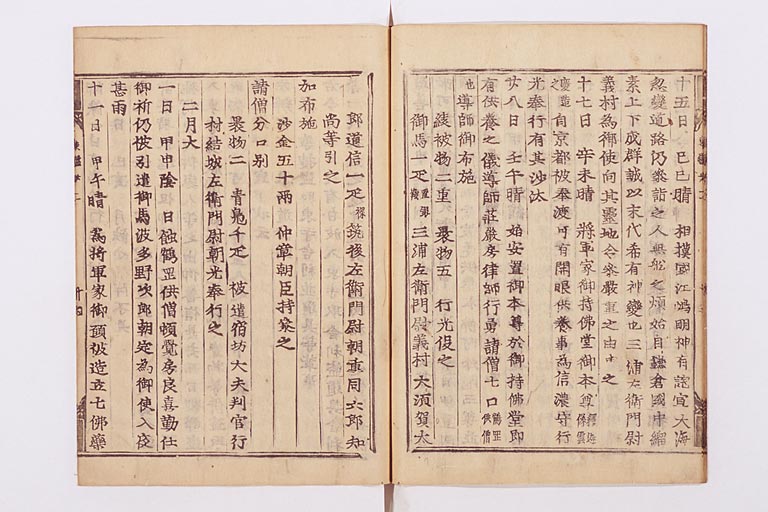 十五日 己巳晴 相摸國江嶋明神有託宣大海
忽變道路仍參詣之人無舩之煩始自鎌倉國中緇
素上下成群誠以末代希有神變也三浦左衛門尉
義村為御使向其霊地令參嚴重之由申之
十七日 辛未晴 將軍家御持佛堂御本尊
自京都被奉渡可有開眼供養事為信濃守行
光奉行有其沙汰
廿八日 壬午晴 始安置御本尊於御持佛堂即
有供養之儀導師莊嚴房律師行勇請僧七口 鶴罡供僧
也導師御布施
綾被物二重 褁物五 行光伇之
御馬一疋 三浦左衛門尉義村大須賀太
郎道信一疋 筑後左衛門尉朝重同六郎知
尚等引之
加布施
沙金五十兩 仲章朝臣持參之
請僧分口別
褁物二 青鳧千疋 被遣宿坊大夫判官行
村結城左衛門尉朝光奉行之
二月大
一日 甲申陰 日蝕鶴罡供僧頓覺房良喜勤仕
御祈仍被引遣御馬波多野次郎朝定為御使入夜
甚雨
十一日 甲午晴 為將軍家御願被造立七佛藥